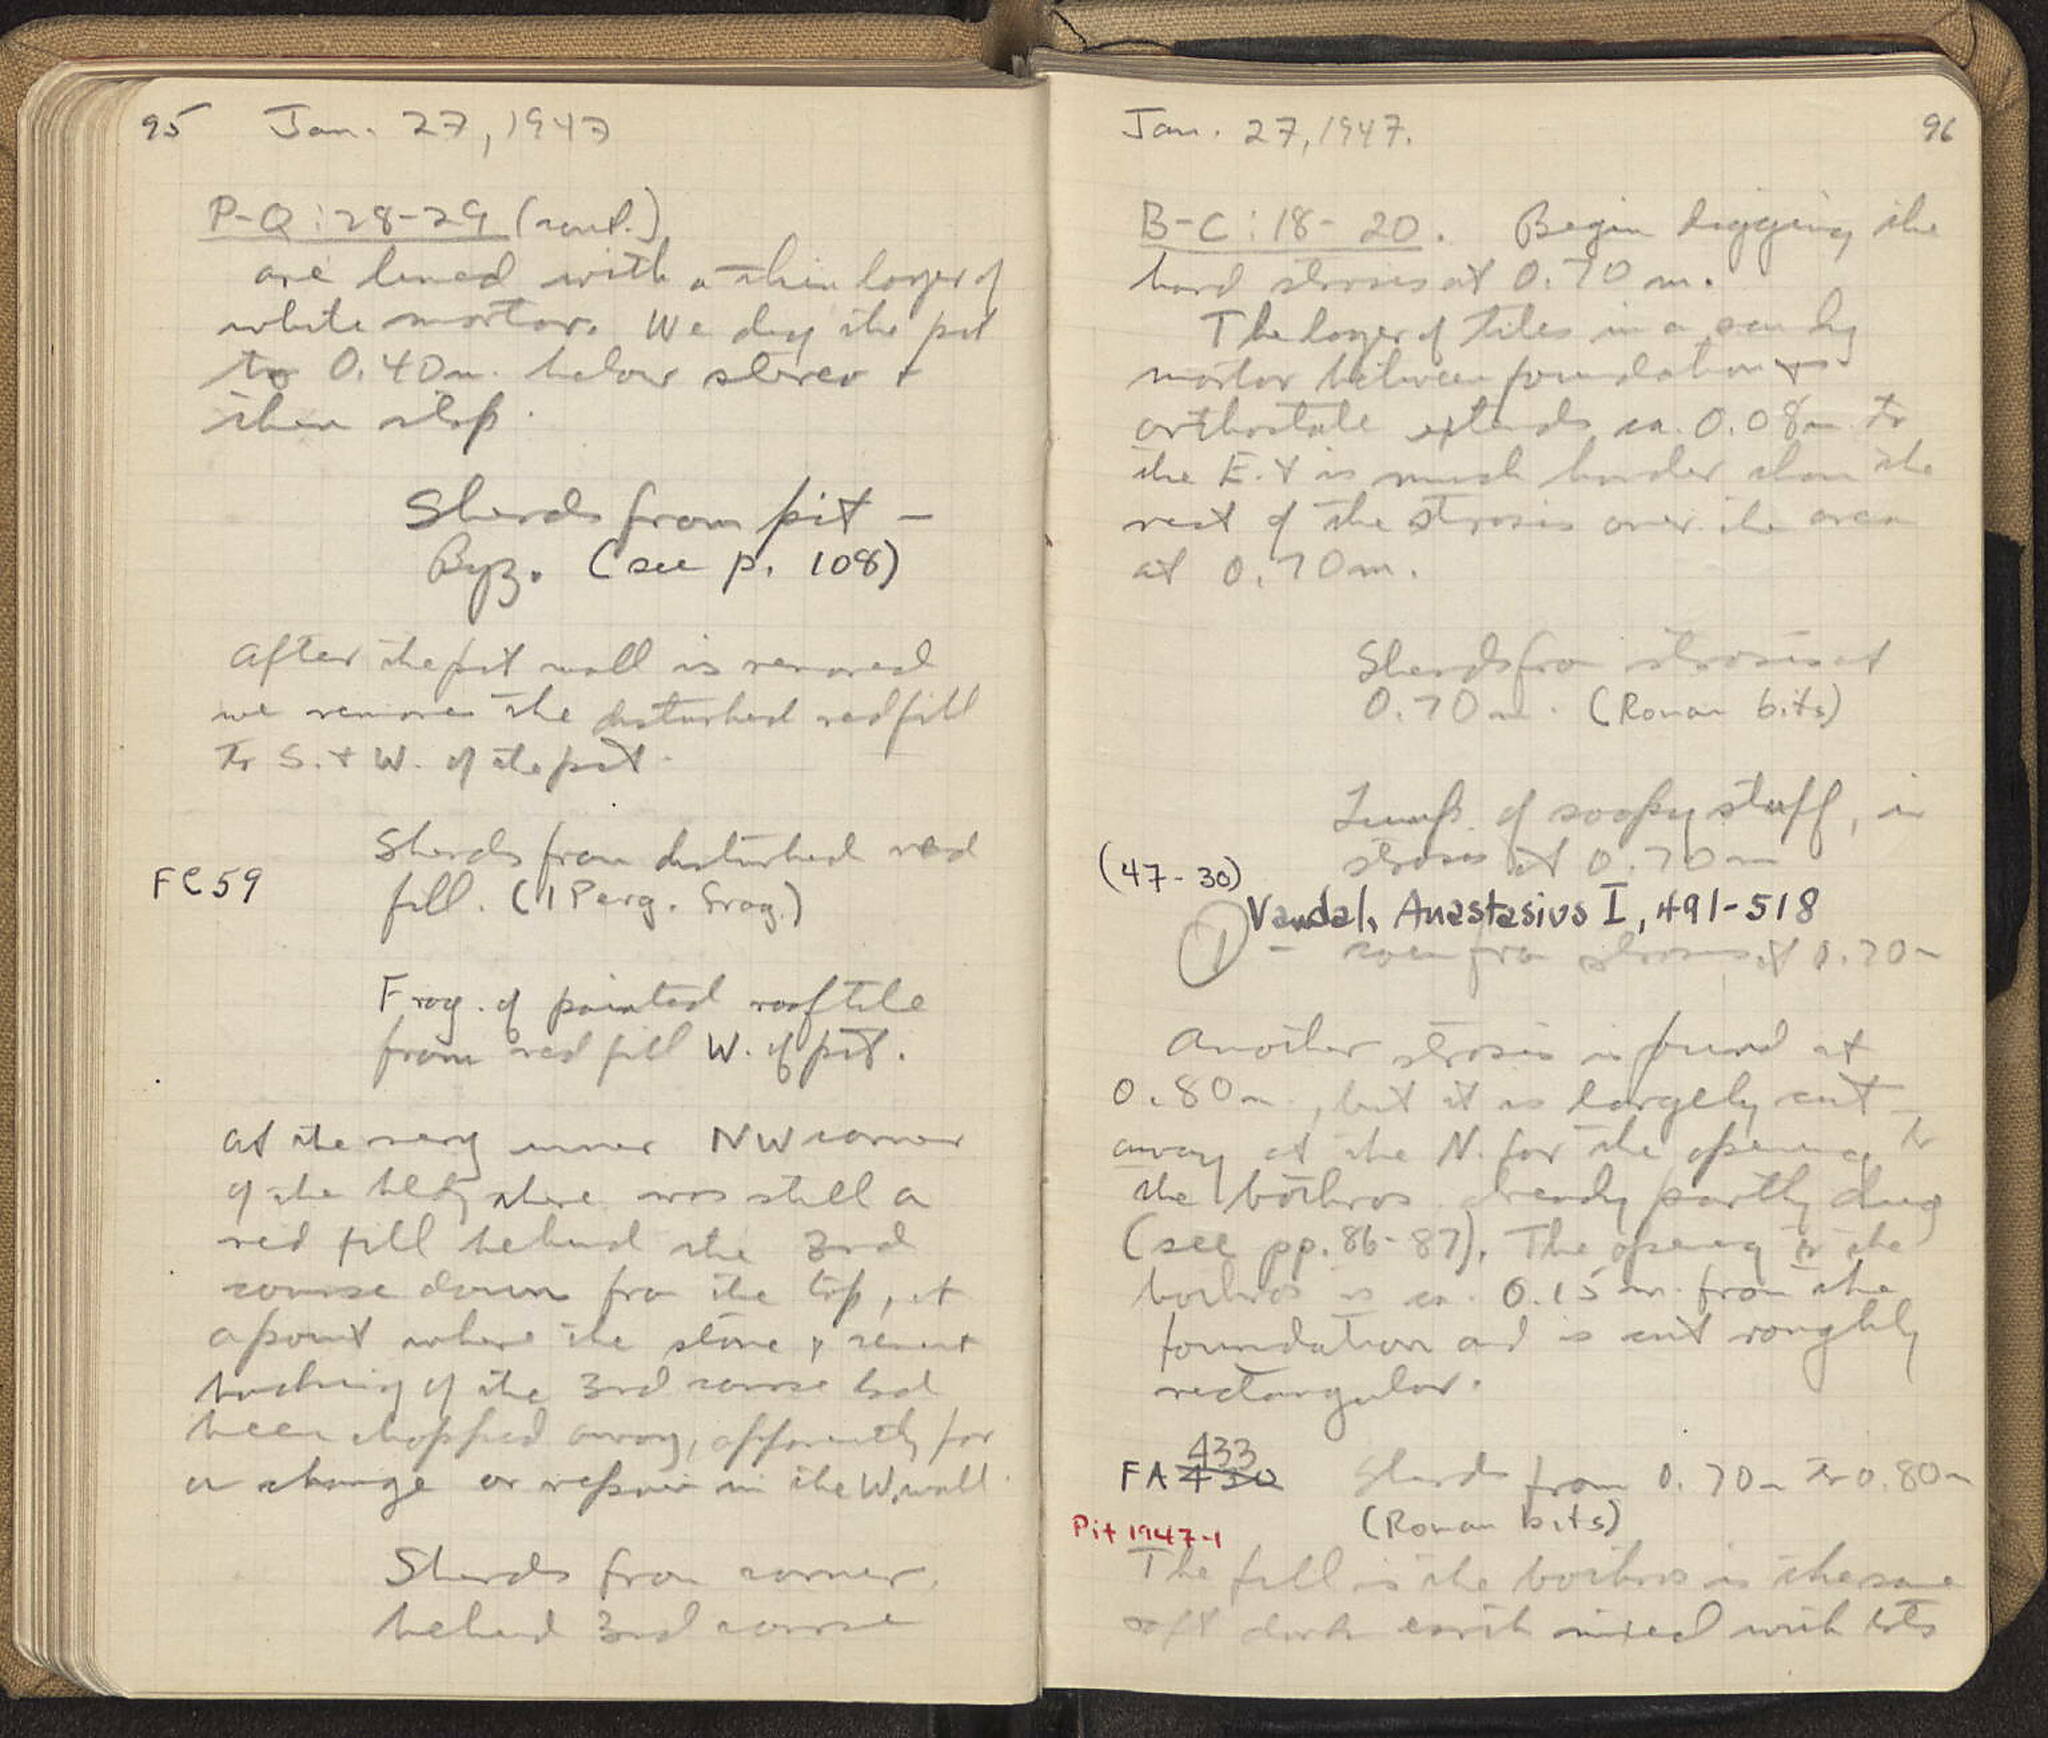 95 Jan. 27, 1947
P-Q: 28-29 (cont.)
are lined with a thin layer of
white mortar. We dig the pit
to 0.40m. below stereo +
then stop.
Sherds from pit –
Byz. (see p. 108)
After the pit wall is removed
we remove the disturbed red fill
to S. + W. of the pit.
Sherds from disturbed red
FC 59
fill. (1 Perg. frag.)
Frag. of painted rooftile
from red fill W. of pit.
At the very inner NW corner
of the bldg there was still a
red fill behind the 3rd
course down from the top, at
a point where the stone +
backing of the 3rd course had
been chopped away, apparently for
a change or repair in the W. wall.
Sherds from corner,
behind 3rd course
Jan. 27, 1947. 96
B-C: 18-20. Begin digging the
hard strosis at 0.70 m.
The layer of tiles in a sandy
mortar between foundation +
orthostate extends ca. 0.08m to
the E. + is much harder than the
rest of the strosis over the area
at 0.70m.
Sherds from strosis at
0.70m. (Roman bits)
Lump of soapy stuff, in
strosis at 0.70m
(47-30)
Vandal, Anastasius I, 491-518
1 – coin from strosis at 0.70m
Another strosis is found at
0.80m, but it is largely cut
away at the N. for the opening to
the bothros already partly dug
(see pp. 86-87). The opening to the
bothros is ca. 0.15m. from the
foundation and is cut roughly
rectangular.
433
FA 430 Sherds from 0.70m to 0.80m
(Roman bits)
Pit 1947-1
The fill in the bothros is the same
soft dark earth mixed with bits